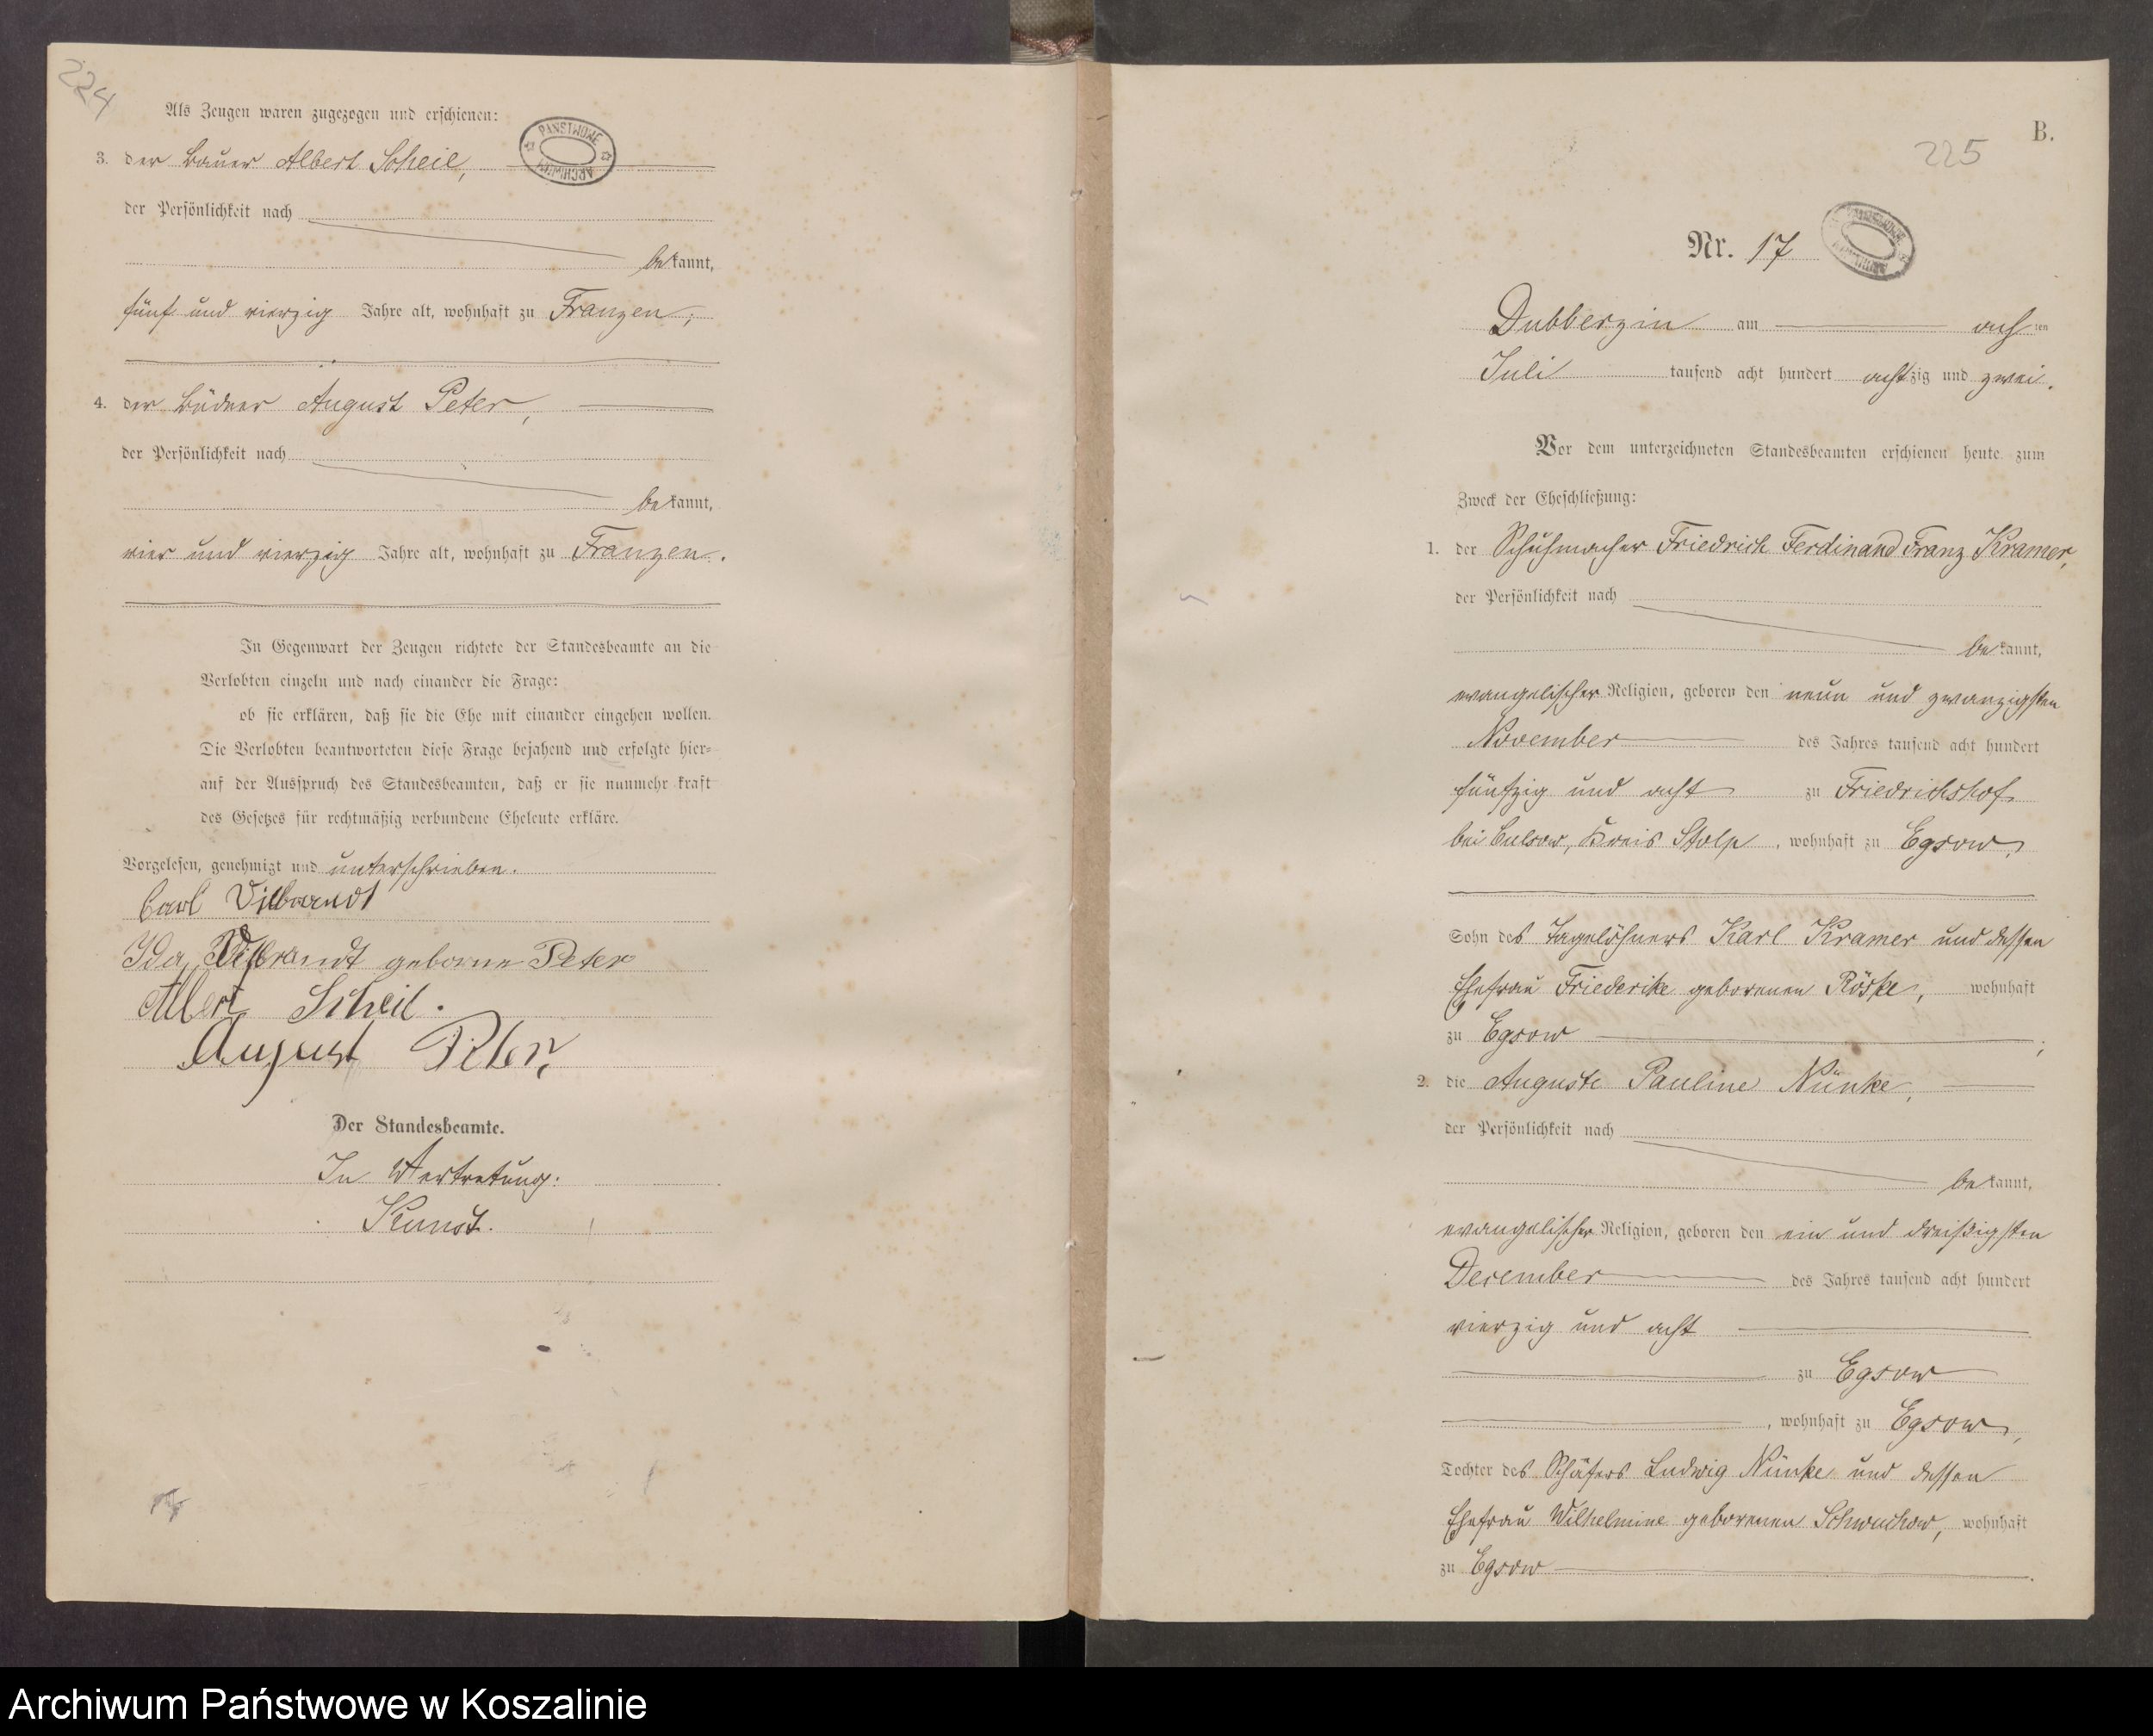 224
Als Zeugen waren zugezogen und erschienen:
PAŃSTWOWE ARCHIWUM
3. der Bauer Albert Scheil,
der Persönlichkeit nach
bekannt,
fünf und vierzig Jahre alt, wohnhaft zu Franzen;
4. der Büdner August Peter,
der Persönlichkeit nach
bekannt,
vier und vierzig Jahre alt, wohnhaft zu Franzen.
In Gegenwart der Zeugen richtete der Standesbeamte an die
Verlobten einzeln und nach einander die Frage:
ob sie erklären, daß sie die Ehe mit einander eingehen wollen.
Die Verlobten beantworteten diese Frage bejahend und erfolgte hier-
auf der Ausspruch des Standesbeamten, daß er sie nunmehr kraft
des Gesetzes für rechtmäßig verbundene Eheleute erkläre.
Vorgelesen, genehmigt und unterschrieben.
Carl Vilbrandt
Ida Vilbrandt geborne Peter
Albert Scheil.
August Peter,
Der Standesbeamte.
In Vertretung:
Kunst.
B.
225
Nr. 17
Dubberzin am achten
Juli tausend acht hundert achtzig und zwei.
Vor dem unterzeichneten Standesbeamten erschienen heute zum
Zweck der Eheschließung:
1. der Schuhmacher Friedrich Ferdinand Franz Kramer,
der Persönlichkeit nach
bekannt,
evangelischer Religion, geboren den neun und zwanzigsten
November des Jahres tausend acht hundert
fünfzig und acht zu Friedrichshof
bei Culsow, Kreis Stolp, wohnhaft zu Egsow,
Sohn des Tagelöhners Karl Kramer und dessen
Ehefrau Friederike geborenen Röske, wohnhaft
zu Egsow;
2. die Auguste Pauline Nünke,
der Persönlichkeit nach
bekannt,
evangelischer Religion, geboren den ein und dreißigsten
December des Jahres tausend acht hundert
vierzig und acht
zu Egsow
, wohnhaft zu Egsow,
Tochter des Schäfers Ludwig Nünke und dessen
Ehefrau Wilhelmine geborenen Schwuchow, wohnhaft
zu Egsow.
Archiwum Państwowe w Koszalinie